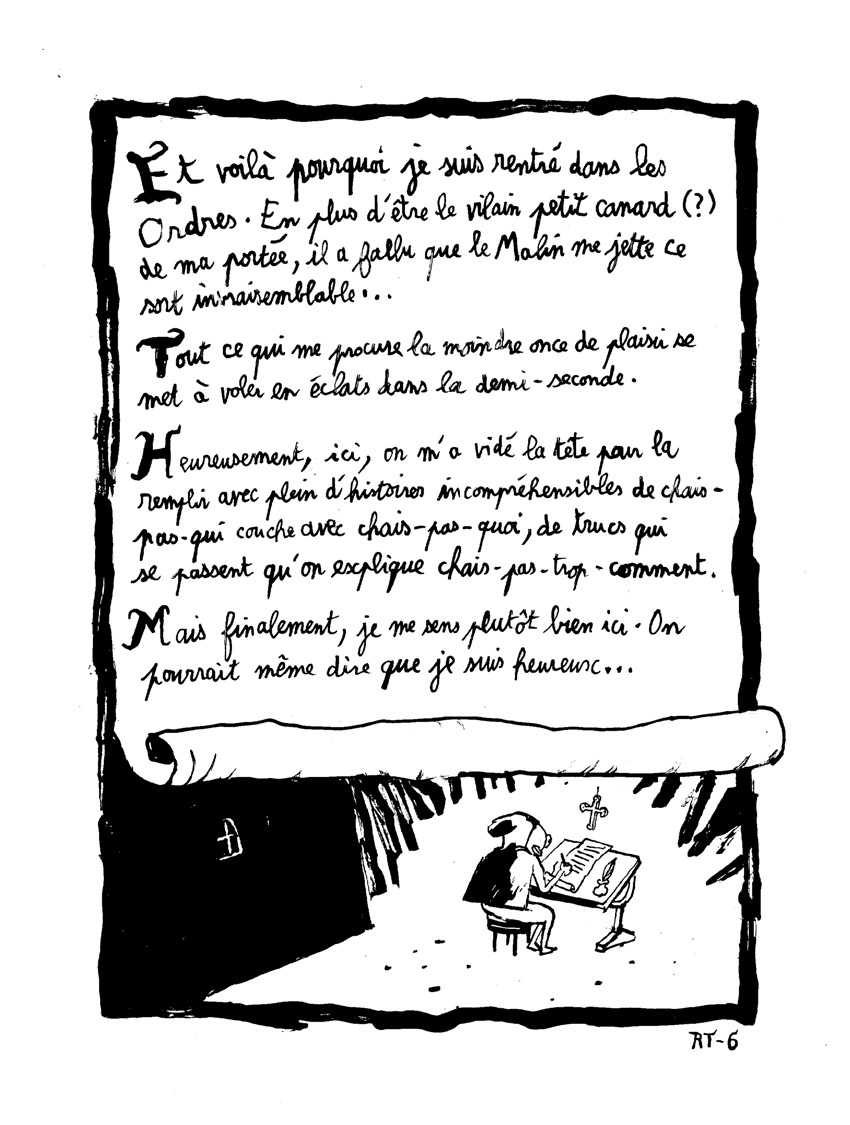 Et voilà pourquoi je suis rentré dans les
Ordres. En plus d'être le vilain petit canard (?)
de ma portée, il a fallu que le Malin me jette ce
sort invraisemblable...
Tout ce qui me procure la moindre once de plaisir se
met à voler en éclats dans la demi-seconde.
Heureusement, ici, on m'a vidé la tête pour la
remplir avec plein d'histoires incompréhensibles de chais-
pas-qui couche avec chais-pas-quoi, de trucs qui
se passent qu'on explique chais-pas-trop-comment.
Mais finalement, je me sens plutôt bien ici. On
pourrait même dire que je suis heureux...
RT-6